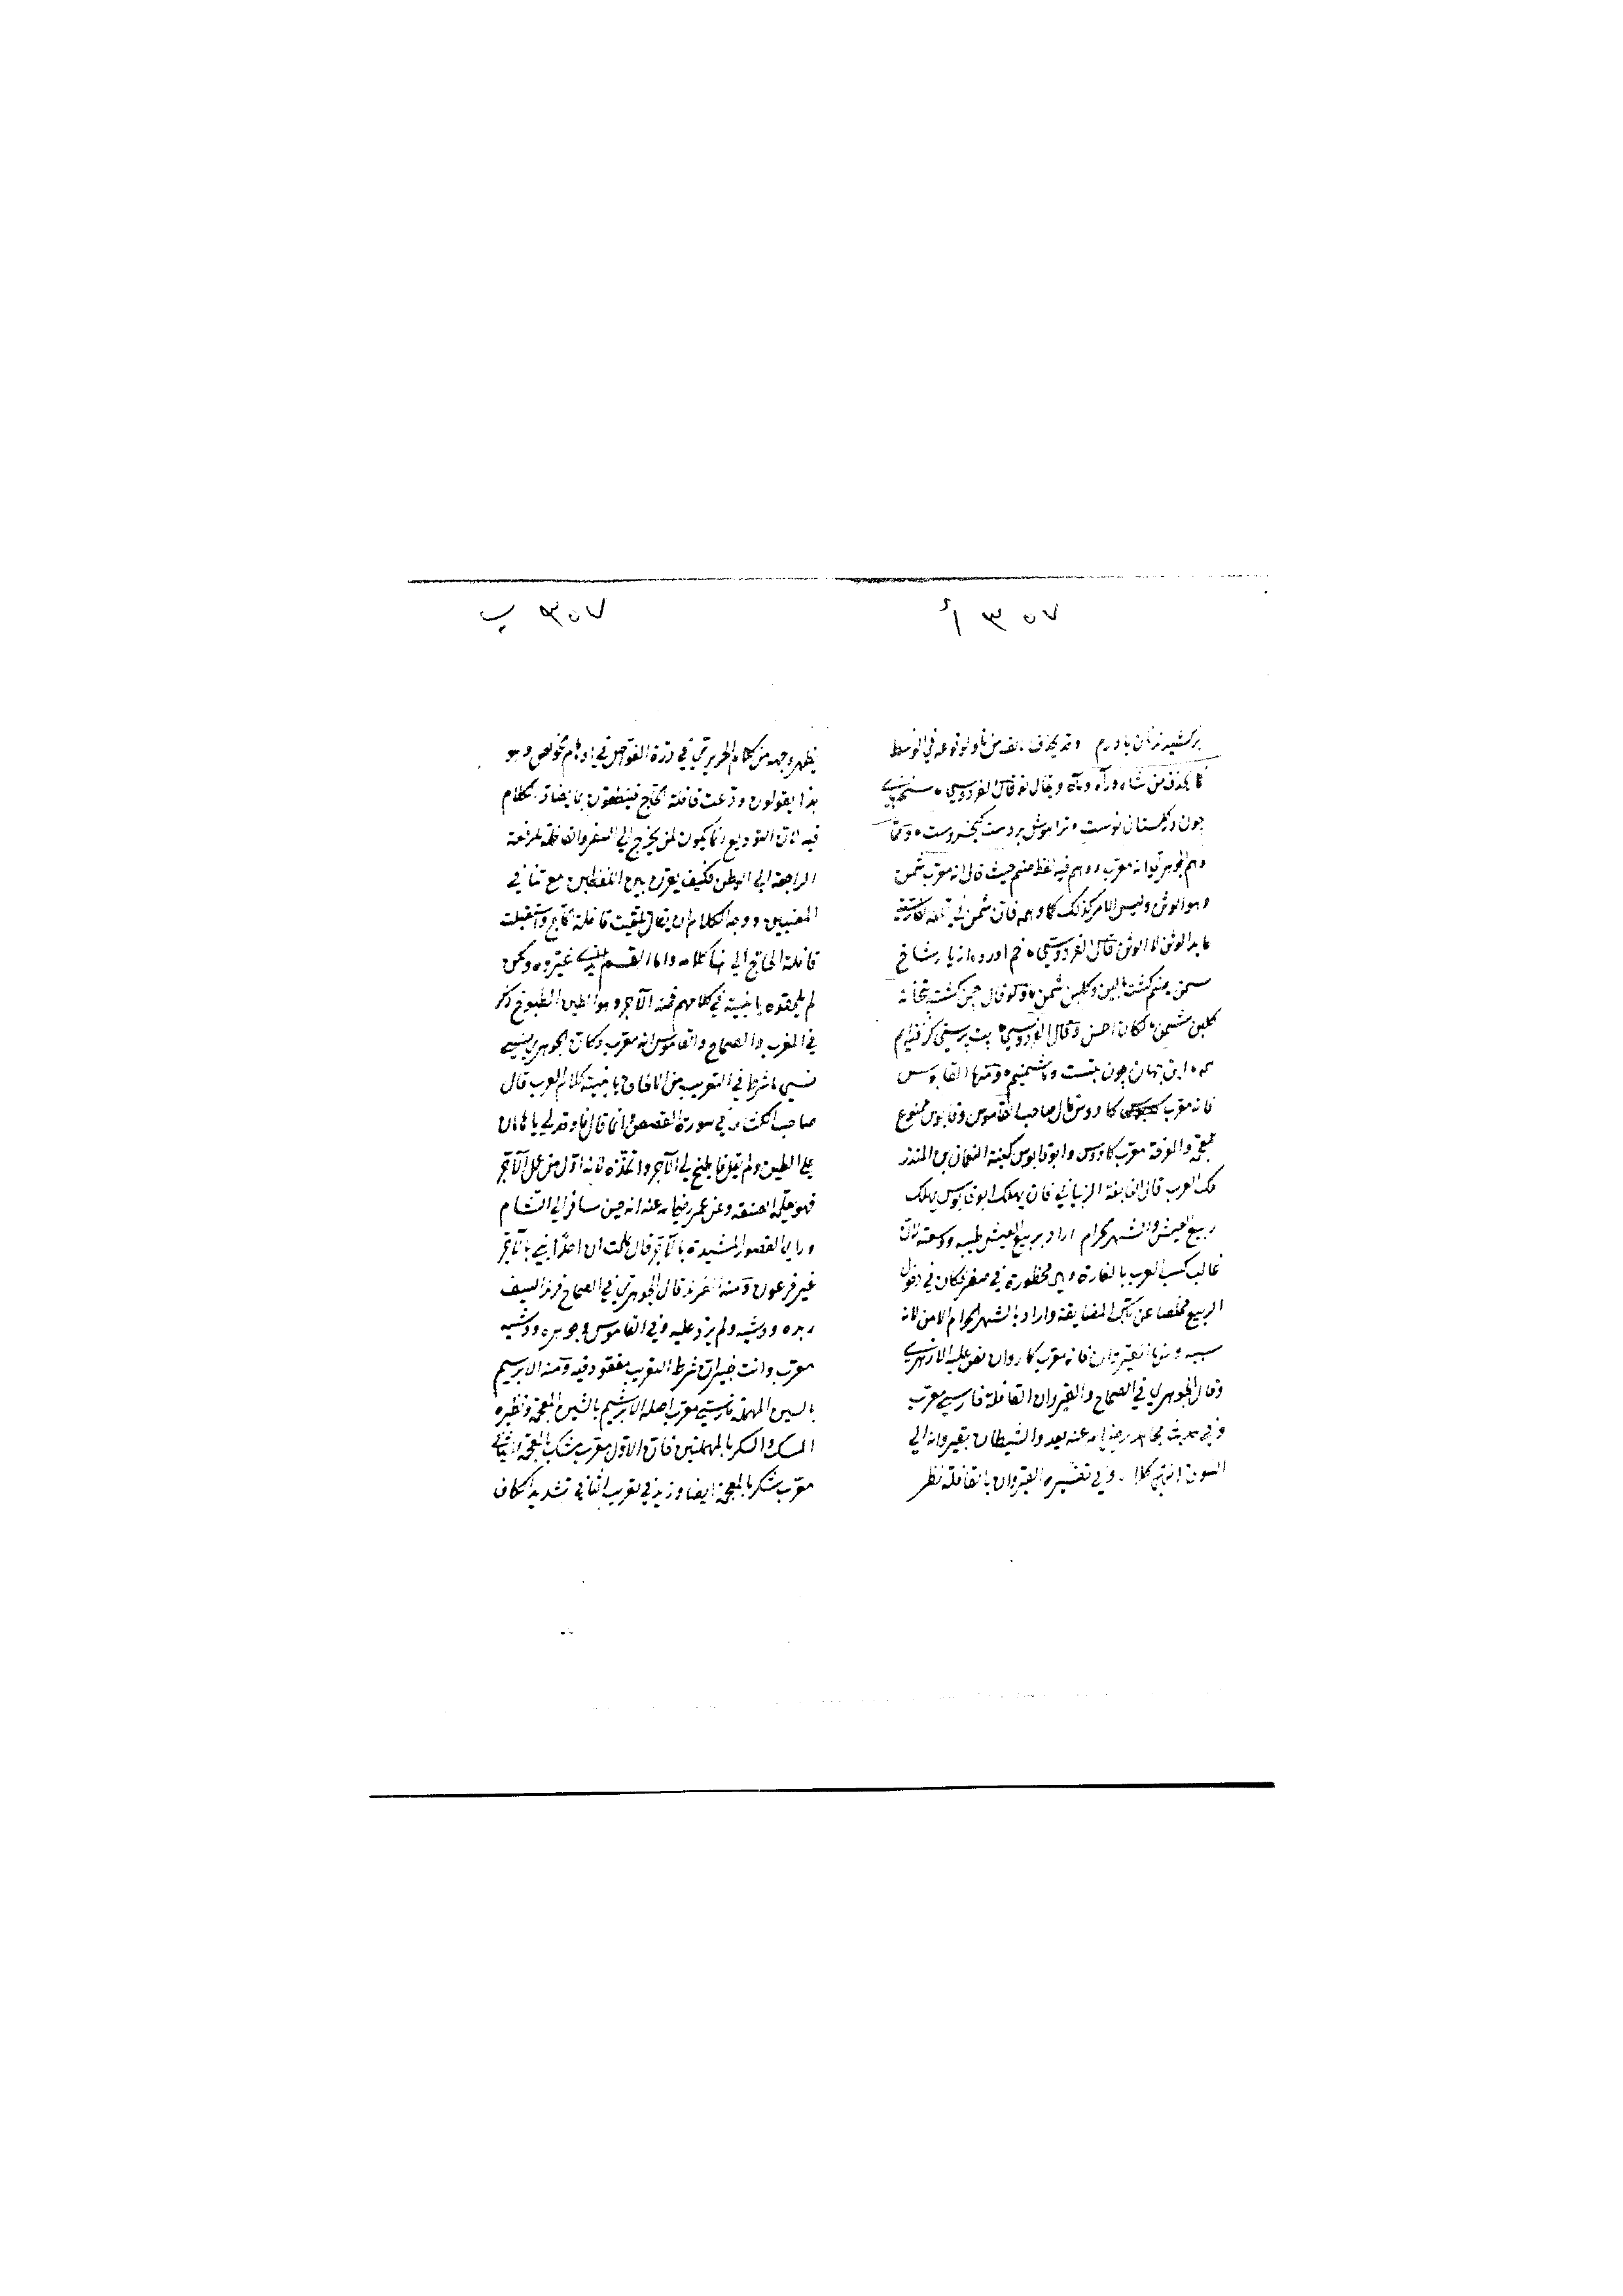 ٣٠٧ أ
بركشيدند آن باد رم وقد يحذف الفه من ماه لوقوعه في الوسط
كما يحذف من شاه وراه وماه ويقال قال الفردوسي سخنهاى
جون گلستان نوست ترا موش بر دست كيخسروست ومما
وهم الجوهري انه معرب ووهم فيه لفظ صنم حيث قال انه معرب شمن
وهو الوثن وليس الامر كذلك كما وهمه فان شمن في لغة الفارسية
عابد الوثن لا الوثن قال الفردوسي
سمن صنم گشت پالين و گلبن شمن ولو قال چمن گشت بتخانه
گلبن شمن لكان احسن وقال الفردوسي بت پرستى گرفتيم
همه اين جهان چون بتست وما شمنيم ومنها القابوس
فانه معرب كاووس قال صاحب القاموس وقابوس ممنوع
للعجمة والمعرفة معرب كاووس وابو قابوس كنية النعمان بن المنذر
ملك العرب قال النابغة الذبياني فان يهلك ابو قابوس يهلك
ربيع العيش والشهر الحرام اراد بربيع العيش طيبه وسعته لان
غالب كسب العرب بالغارة وهي محظورة في صفر فكان في دخول
الربيع مخلصا عن تلك المضايقة واراد بالشهر الحرام الامن لانه
سببه ومنها القيروان فانه معرب كاروان نص عليه الازهري
وقال الجوهري في الصحاح والقيروان القافلة فارسي معرب
وفي حديث مجاهد رضي الله عنه يغدو الشيطان بقيروانه الى
السوق انتهى كلامه وفي تفسيره القيروان بالقافلة نظر
٣٠٧ ب
يظهر وجهه من كلام الحريري في درة الغواص في اوهام الخواص وهو
هذا يقولون ودعت قافلة الحاج فينطقون بما يضاد الكلام
فيه لان التوديع انما يكون لمن يخرج الى السفر والقافلة للرفقة
الراجعة الى الوطن فكيف يقرن بين اللفظين مع تنافي
المعنيين ووجه الكلام ان يقال تلقيت قافلة الحاج واستقبلت
قافلة الحاج الى هنا كلامه واما القسم الذي غيروه ولكن
لم يلحقوه بابنية في كلامهم فمنه الآجر وهو الطين المطبوخ ذكر
في المغرب والصحاح والقاموس انه معرب وكان الجوهري نسي
نسي ما شرط في التعريب من الالحاق بابنية كلام العرب قال
صاحب الكشاف في سورة القصص انما قال فاوقد لي يا هامان
على الطين ولم يقل فاطبخ لي الآجر واتخذه لانه اول من عمل الآجر
فهو يعلمه الصنعة وعن عمر رضي الله عنه انه حين سافر الى الشام
وراى القصور المشيدة بالآجر فقال ما علمت ان احدا بنى بالآجر
غير فرعون ومنه الفرند قال الجوهري في الصحاح فرند السيف
ربده ووشيه ولم يزد عليه وفي القاموس وجوهره ووشيه
معرب وانت خبير ان شرط التعريب مفقود فيه ومنه الابريسم
بالسين المهملة فارسي معرب اصله الابريشم بالشين المعجمة ونظيره
المسك والسكر بالمهملتين فان الاول معرب مشك بالمعجمة والثاني
معرب شكر بالمعجمة ايضا وزيد في تعريب الثاني تشديد الكاف